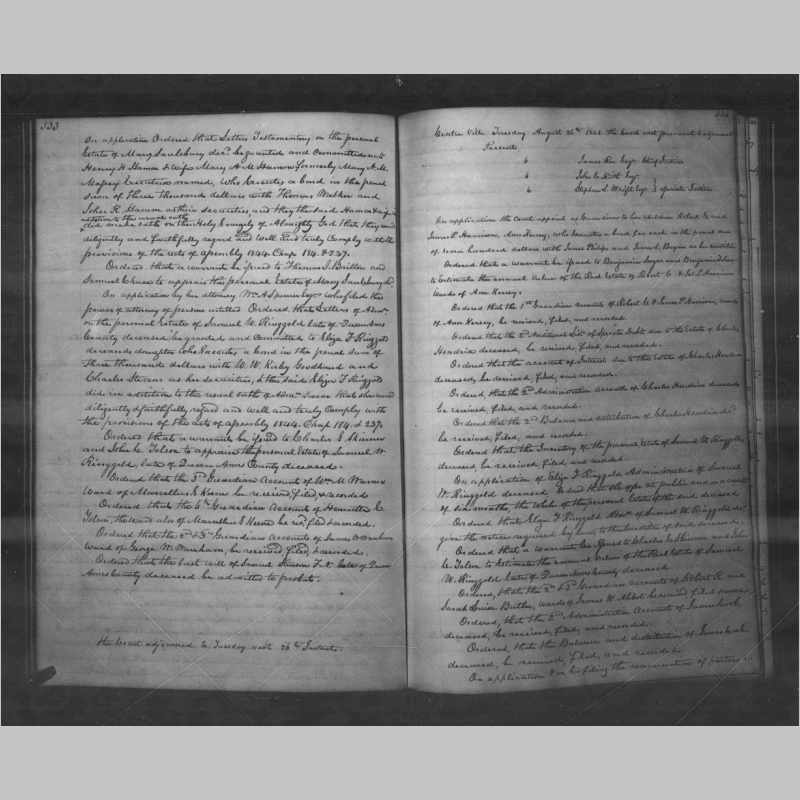 333
On application Ordered that Letters Testamentary on the personal
Estate of Mary Saulsbury decd. be granted and committed unto
Henry H Hamm & wife Mary A. M. Hamm formerly Mary A. M.
Massey Executrix named, who Executes a bond in the penal
sum of three thousand dollars with Thomas and
John R. Hamm as their securities, and they the said Hamm & wife
in addition to the usual oath
did make oath on the Holy Evangely of Almighty God that they would
diligently and faithfully regard and well and truly Comply with the
provisions of the acts of assembly 1844. Chap 184. & 237.
Ordered that a warrant be issued to Thomas J. Britton and
Samuel to appraise the personal Estate of Mary Saulsbury decd.
On application by his attorney Wm. A Spencer Esqr. who filed the
power of attorney of persons entitled Ordered that Letters of Admn.
on the personal Estate of Samuel W. Ringgold late of Queen Anns
County deceased be granted and committed to Eliza F Ringgold
deceaseds daughter who Executes, a bond in the penal sum of
Three thousand dollars with W. W. Kirby and
Charles Stevens as his securities, & the said Eliza F Ringgold
did in addition to the usual oath of Admn. swear that she would
diligently & faithfully, regard and well and truly Comply with
the provisions of the acts of assembly 1844. Chap 184. & 237.
Ordered that a warrant be issued to Charles J. Skinner
and John C. Tolson to appraise the personal Estate of Samuel W.
Ringgold, late of Queen Anns County deceased.
Ordered that the 3d Guardian Account of Wm. M
Ward of Marcellus Keene be received, filed, & recorded
Ordered that the 6th Guardian Account of Henrietta C
Tolson, the ward also of Marcellus Keene be recd, filed & recorded.
Ordered that the 2d & 3d Guardians Accounts of James
Ward of George W. be received filed, & recorded.
Ordered that the last will of Samuel late of Queen
Anns County deceased be admitted to probate.
The Court adjourned to Tuesday next 26th Instant.
Centre Ville Tuesday August 26th the Court met pursuant to adjournment
Present
Esqr. Chief Justice
John C. Esqr.
Stephen J. Wright Esqr. Associate Justices
On application the Court appoint as Guardian to her children Robert C. and
James P. Harrison, Ann Kersey, who executes a bond for each in the penal sum
of nine hundred dollars with James Phelps and Samuel as her securities
Ordered that a Warrant be issued to Benjamin and Benjamin
to Estimate the annual value of the Real Estate of Robert C. & Jas. P. Harrison
Wards of Ann Kersey.
Ordered that the 1st Guardian accounts of Robert C. & James P. Harrison, wards
of Ann Kersey, be received, filed, and recorded.
Ordered that the 2d Additional List of Sperate Debts due to the Estate of Charles
Hendrix deceased, be received, filed, and recorded.
Ordered that the account of Interest due to the Estate of Charles Hendrix
deceased, be received, filed, and recorded.
Ordered, that the 2d Administration Account of Charles Hendrix deceased
be received, filed, and recorded.
Ordered that the 2d Balance and distribution of Charles Hendrix decd.
be received, filed, and recorded.
Ordered that the Inventory of the personal Estate of Samuel W. Ringgold
deceased, be received, filed, and recorded.
On application of Eliza F. Ringgold Administratrix of Samuel
W. Ringgold deceased, Ordered that she expose at public sale on a credit
of six months, the whole of the personal Estate of the said deceased
Ordered that Eliza F. Ringgold Admx. of Samuel W. Ringgold decd.
give the notice required by law, to the Creditors of said deceased.
Ordered that a warrant be issued to Charles J. Skinner and John
C. Tolson to Estimate the annual value of the Real Estate of Samuel
W. Ringgold late of Queen Anns County deceased
Ordered, that the 2d & 3d Guardian accounts of Robert R. and
Sarah Louisa Butler, wards of James W. be received filed & recorded.
Ordered, that the 2d Administration Account of James
deceased, be received, filed, and recorded.
Ordered, that the Balance and distribution of James
deceased, be received, filed, and recorded.
On application & on his filing the renunciation of parties